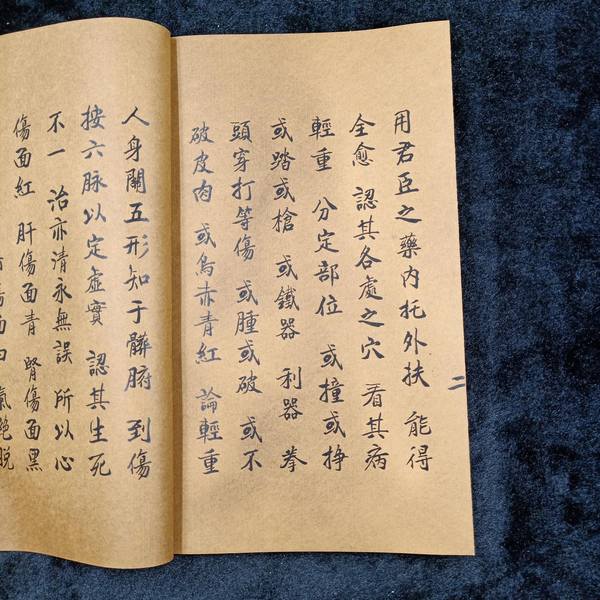 用君臣之藥內托外扶 能得
全愈 認其各處之穴 看其病
輕重 分定部位 或撞或掙
或踏或槍 或鐵器 利器 拳
頭穿打等傷 或腫或破 或不
破皮肉 或烏赤青紅 論輕重
二
人身關五形知于髒腑 到傷
按六脉以定虛實 認其生死
不一 治亦清永無誤 所以心
傷面紅 肝傷面青 腎傷面黑
傷面白 氣絶脫